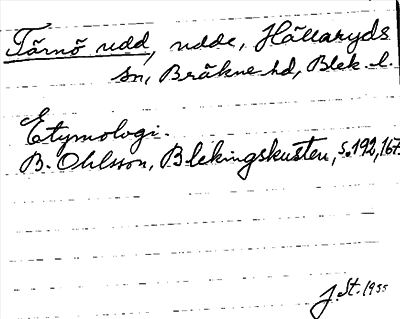 Tärnö udd, udde, Hällaryds
sn, Bräkne hd, Blek. l.
Etymologi.
B. Ohlsson, Blekingskusten, s. 192, 167.
J. St. 1955